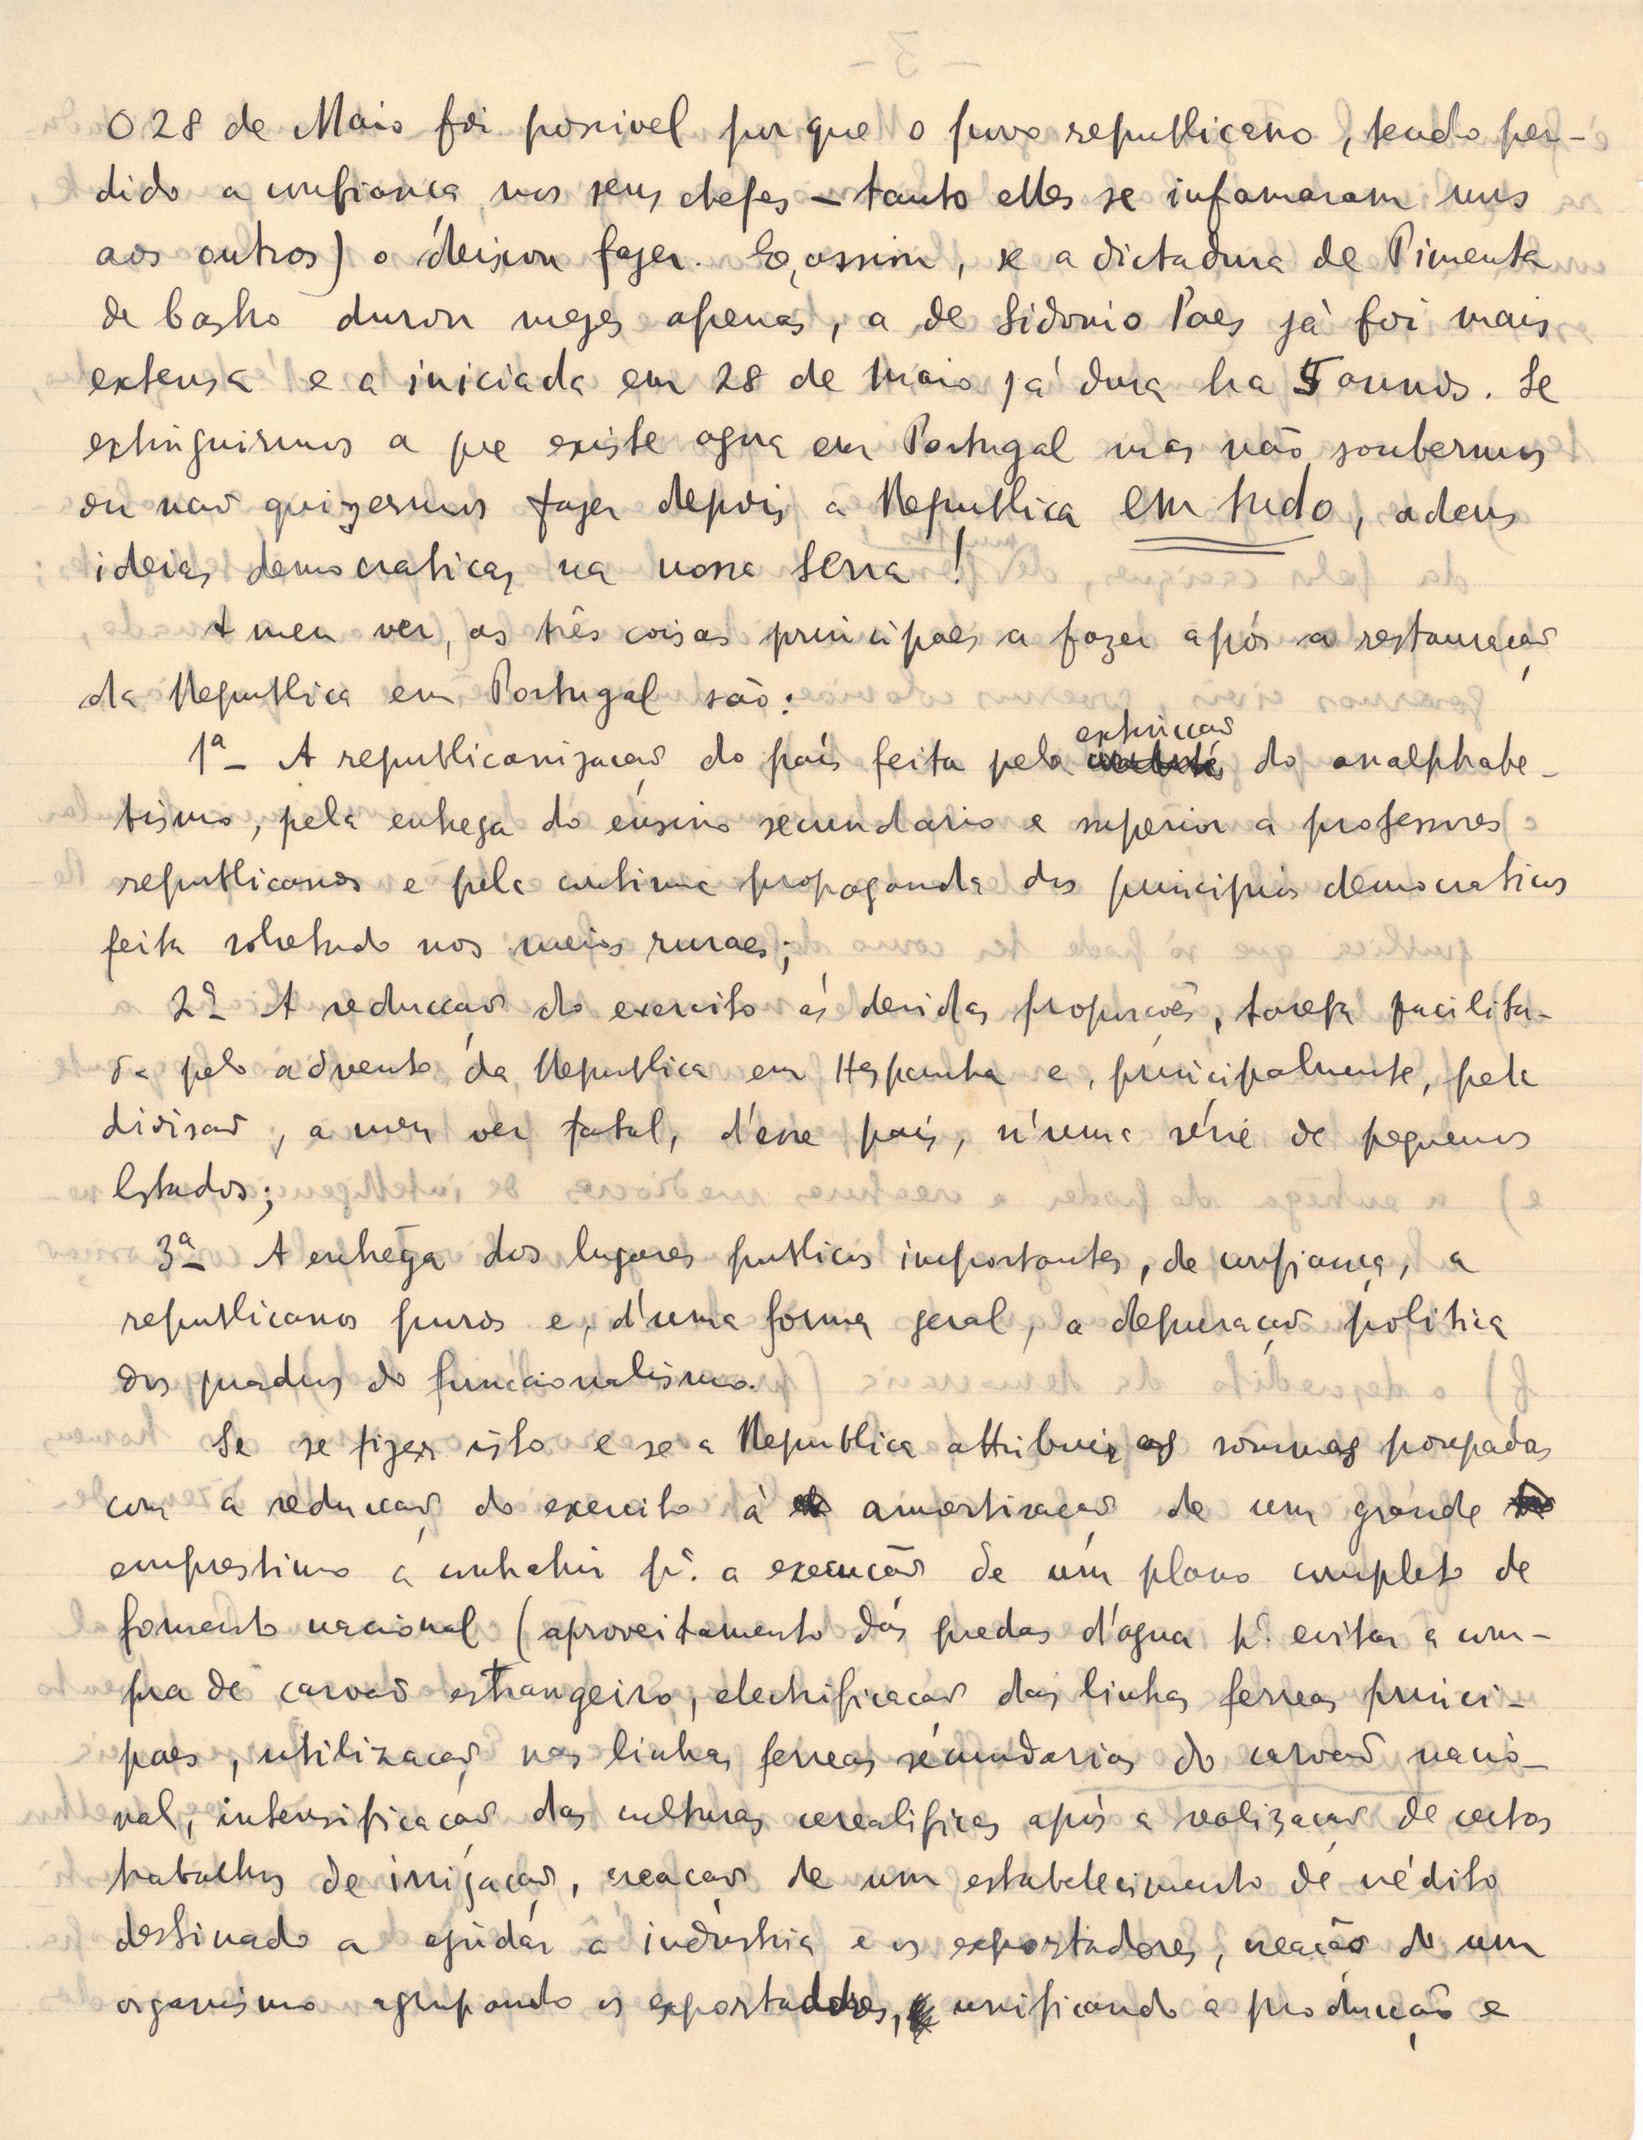 O 28 de Maio foi possivel porque o povo republicano, tendo per-
dido a confiança nos seus chefes – tanto elles se infamaram uns
aos outros) o deixou fazer. E, assim, se a dictadura de Pimenta
de Castro durou mezes apenas, a de Sidonio Paes já foi mais
extensa e a iniciada em 28 de Maio já dura ha 5 annos. Se
extinguirmos a que existe agora em Portugal mas não soubermos
ou não quizermos fazer depois a Republica em tudo, adeus
ideias democraticas na nossa terra!
A meu ver, as três coisas principaes a fazer após a restauração
da Republica em Portugal são:
1ª – A republicanização do país feita pela extincção do analphabe-
tismo, pela entrega do ensino secundario e superior a professores
republicanos e pela continua propaganda dos principios democraticos
feita sobretudo nos meios ruraes;
2ª A reducção do exercito ás devidas proporções, tarefa facilita-
da pelo advento da Republica em Hespanha e, principalmente, pela
divisão, a meu ver fatal, d'esse país, n'uma série de pequenos
Estados;
3ª A entrega dos lugares publicos importantes, de confiança, a
republicanos puros e, d'uma forma geral, a depuração politica
dos quadros do funccionalismo.
Se se fizer isto e se a Republica attribuir as sommas poupadas
com a reducção do exercito á amortização de um grande
emprestimo a contrahir pª a execução de um plano completo de
fomento nacional (aproveitamento das quedas d'agua pª evitar a com-
pra de carvão estrangeiro, electrificação das linhas ferreas princi-
paes, utilização nas linhas ferreas secundarias do carvão nacio-
nal, intensificação das culturas cerealificas após a realização de certos
trabalhos de irrigação, creação de um estabelecimento de crédito
destinado a ajudar a industria e os exportadores, creação de um
organismo agrupando os exportadores, unificando a producção e